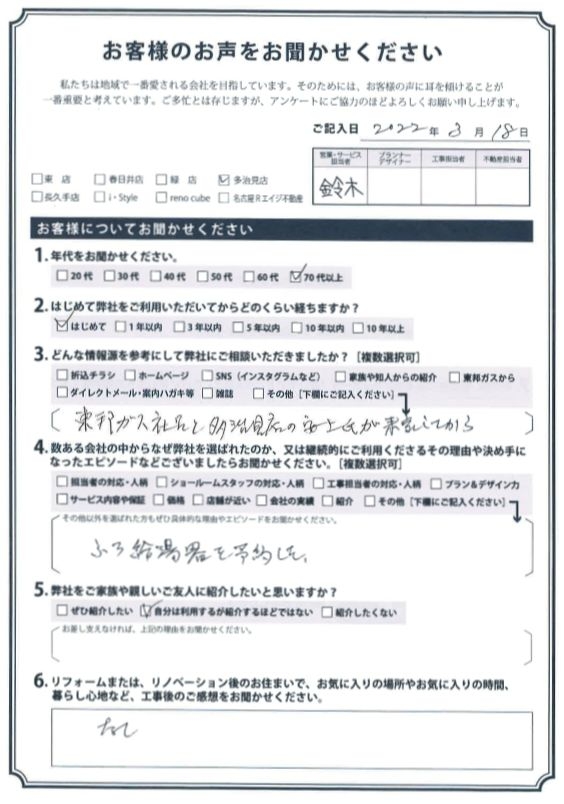 お客様のお声をお聞かせください
私たちは地域で一番愛される会社を目指しています。そのためには、お客様の声に耳を傾けることが
一番重要と考えています。ご多忙とは存じますが、アンケートにご協力のほどよろしくお願い申し上げます。
ご記入日 2022年 3月 18日
営業・サービス担当者 プランナーデザイナー 工事担当者 不動産担当者
鈴木
□東店 □春日井店 □緑店 ☑多治見店
□長久手店 □i・Style □reno cube □名古屋Rエイジ不動産
お客様についてお聞かせください
1.年代をお聞かせください。
□20代 □30代 □40代 □50代 □60代 ☑70代以上
2.はじめて弊社をご利用いただいてからどのくらい経ちますか?
☑はじめて □1年以内 □3年以内 □5年以内 □10年以内 □10年以上
3.どんな情報源を参考にして弊社にご相談いただきましたか?[複数選択可]
□折込チラシ □ホームページ □SNS(インスタグラムなど) □家族や知人からの紹介 □東邦ガスから
□ダイレクトメール・案内ハガキ等 □雑誌 □その他[下欄にご記入ください]
東邦ガス社員と多治見店の上氏が来宅してから
4.数ある会社の中からなぜ弊社を選ばれたのか、又は継続的にご利用くださるその理由や決め手に
なったエピソードなどございましたらお聞かせください。[複数選択可]
□担当者の対応・人柄 □ショールームスタッフの対応・人柄 □工事担当者の対応・人柄 □プラン&デザイン力
□サービス内容や保証 □価格 □店舗が近い □会社の実績 □紹介 □その他[下欄にご記入ください]
その他以外を選ばれた方もぜひ具体的な理由やエピソードをお聞かせください。
ふろ給湯器を予約した
5.弊社をご家族や親しいご友人に紹介したいと思いますか?
□ぜひ紹介したい ☑自分は利用するが紹介するほどではない □紹介したくない
お差し支えなければ、上記の理由をお聞かせください。
6.リフォームまたは、リノベーション後のお住まいで、お気に入りの場所やお気に入りの時間、
暮らし心地など、工事後のご感想をお聞かせください。
なし